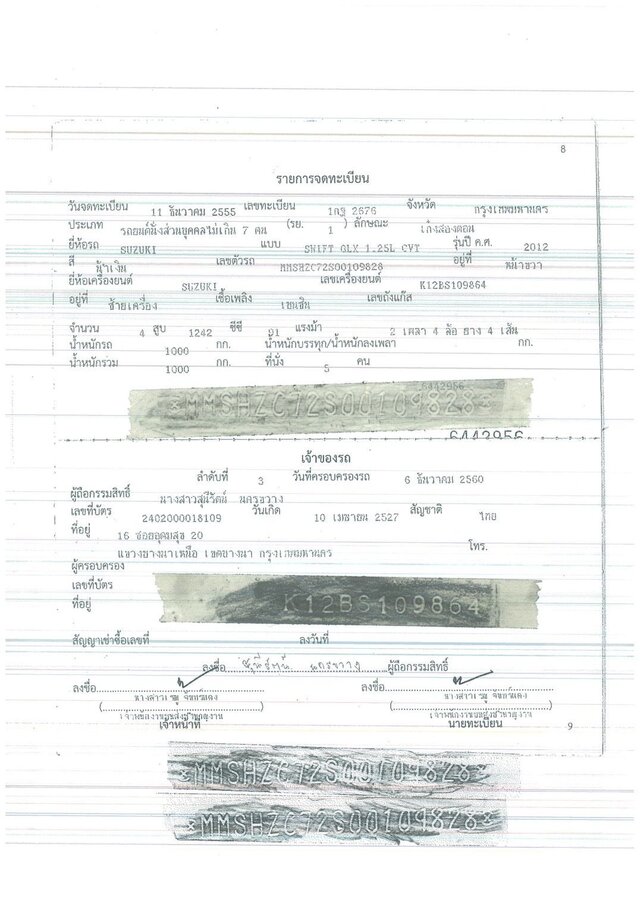 8
รายการจดทะเบียน
วันจดทะเบียน 11 ธันวาคม 2555 เลขทะเบียน 1กฐ 2676 จังหวัด กรุงเทพมหานคร
ประเภท รถยนต์นั่งส่วนบุคคลไม่เกิน 7 คน (รย. 1 ) ลักษณะ เก๋งสองตอน
ยี่ห้อรถ SUZUKI แบบ SWIFT GLX 1.25L CVT รุ่นปี ค.ศ. 2012
สี น้ำเงิน เลขตัวรถ MMSHZC72S00109828 อยู่ที่ หน้าขวา
ยี่ห้อเครื่องยนต์ SUZUKI เลขเครื่องยนต์ K12BS109864
อยู่ที่ ซ้ายเครื่อง เชื้อเพลิง เบนซิน เลขถังแก๊ส
จำนวน 4 สูบ 1242 ซีซี 91 แรงม้า 2 เพลา 4 ล้อ ยาง 4 เส้น
น้ำหนักรถ 1000 กก. น้ำหนักบรรทุก/น้ำหนักลงเพลา กก.
น้ำหนักรวม 1000 กก. ที่นั่ง 5 คน
6442956
*MMSHZC72S00109828*
6442956
เจ้าของรถ
ลำดับที่ 3 วันที่ครอบครองรถ 6 ธันวาคม 2560
ผู้ถือกรรมสิทธิ์ นางสาวสุนีรัตน์ นครขวาง
เลขที่บัตร 2402000018109 วันเกิด 10 เมษายน 2527 สัญชาติ ไทย
ที่อยู่ 16 ซอยอุดมสุข 20
แขวงบางนาเหนือ เขตบางนา กรุงเทพมหานคร โทร.
ผู้ครอบครอง
เลขที่บัตร
ที่อยู่
K12BS109864
สัญญาเช่าซื้อเลขที่ ลงวันที่
ลงชื่อ สุนีรัตน์ นครขวาง ผู้ถือกรรมสิทธิ์
ลงชื่อ ลงชื่อ
เจ้าหน้าที่ นายทะเบียน
9
*MMSHZC72S00109828*
*MMSHZC72S00109828*